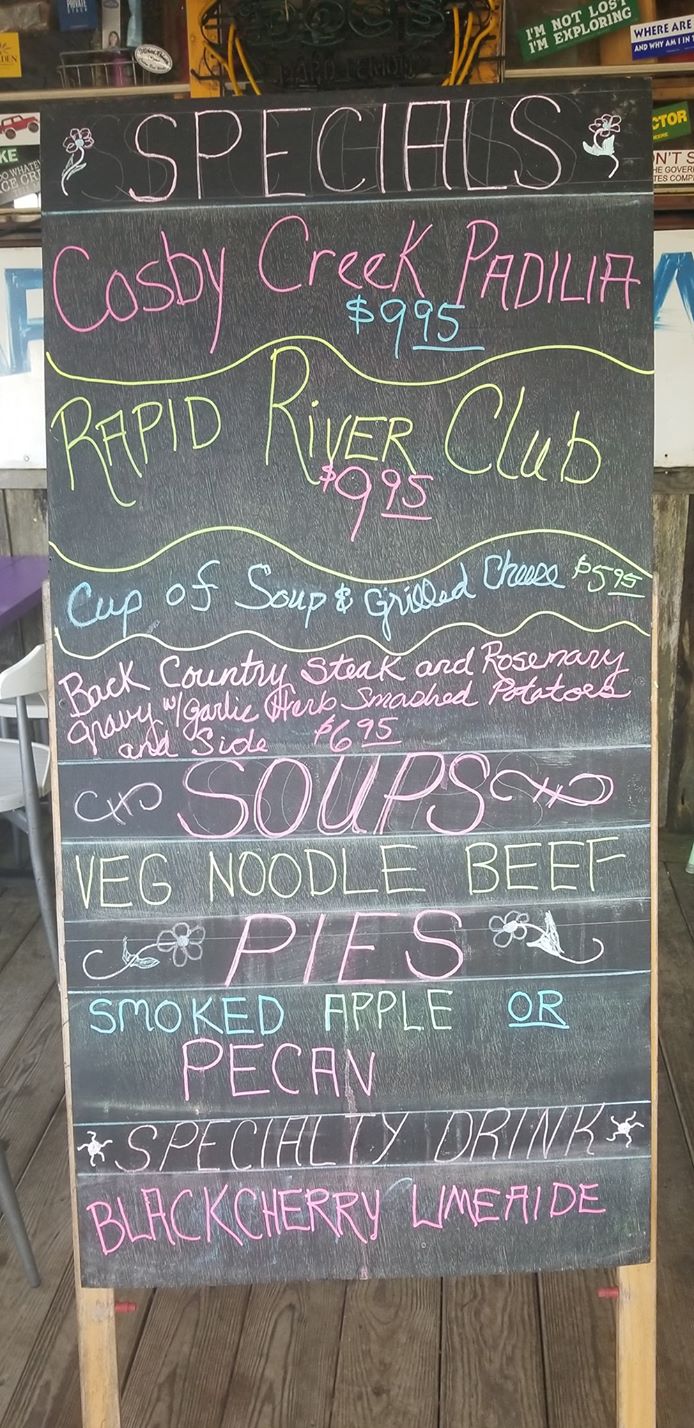 I'M NOT LOST
I'M EXPLORING
WHERE ARE
AND WHY AM I IN T
CTOR
KE
SPECIALS
Cosby Creek PADILIA
$9 95
RAPID RiVER Club
$9 95
Cup of Soup & Grilled Cheese $5 95
Back Country Steak and Rosemary
gravy w/garlic Herb Smashed Potatoes
and Side $6 95
SOUPS
VEG NOODLE BEEF
PIES
SMOKED APPLE OR
PECAN
SPECIALTY DRINK
BLACKCHERRY LIMEAIDE